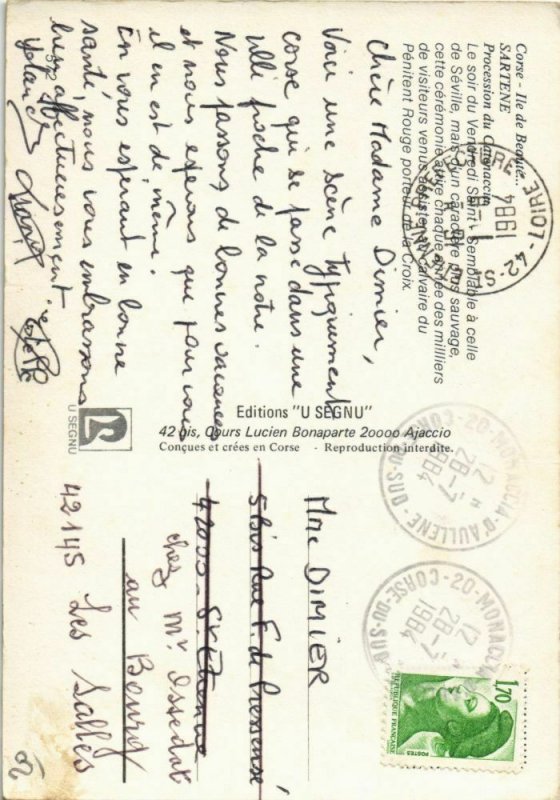 Corse - Ile de Beauté...
SARTENE
Procession du Catenacciu
Le soir du Vendredi Saint - Semblable à celle
de Séville, mais d'un caractère plus sauvage,
cette cérémonie attire chaque année des millliers
de visiteurs venus assister au calvaire du
Pénitent Rouge porteur de la Croix.
Chère Madame Dimier,
Voici une scène typiquement
corse qui se passe dans une
ville proche de la notre.
Nous passons de bonnes vacances
et nous espérons que pour vous
il en est de même.
En vous espérant en bonne
santé, nous vous embrassons
bien affectueusement.
872
U SEGNU
Editions "U SEGNU"
42 bis, Cours Lucien Bonaparte 20000 Ajaccio
Conçues et crées en Corse - Reproduction interdite.
Mme DIMIER
5 bis Rue F. de Pressensé
42000 St Etienne
chez Mr Ossedat
au Bourg
42145 Les Salles
42 - LOIRE
1984
20 - MONACCIA D'AULLENE - CORSE-DU-SUD
12 H
28 - 7
1984
20 - MONACCIA
CORSE-DU-SUD
12
28 - 7
1984
1,70
REPUBLIQUE FRANÇAISE
POSTES